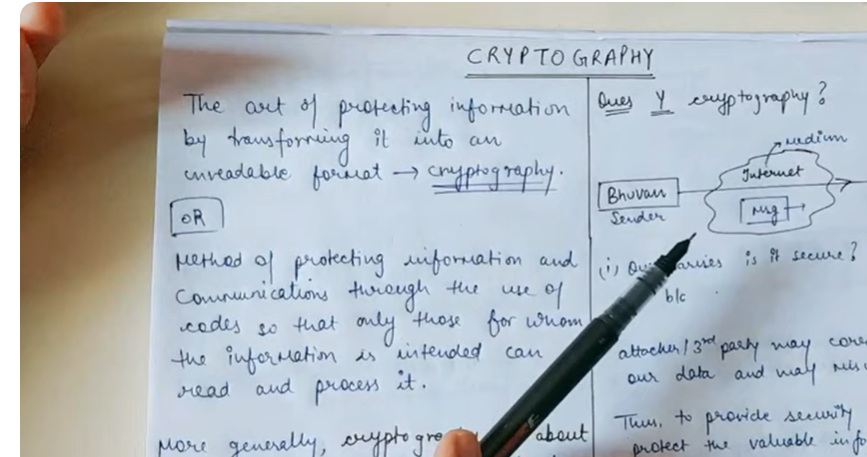 CRYPTOGRAPHY
The art of protecting information
by transforming it into an
unreadable format → cryptography.
OR
Method of protecting information and
Communications through the use of
codes so that only those for whom
the information is intended can
read and process it.
More generally, about
Ques Y cryptography?
Medium
Internet
Bhuvan
Msg
Sender
(i) is it secure?
b/c
attacker/3rd party may
our data and may
Thus, to provide security
protect the valuable